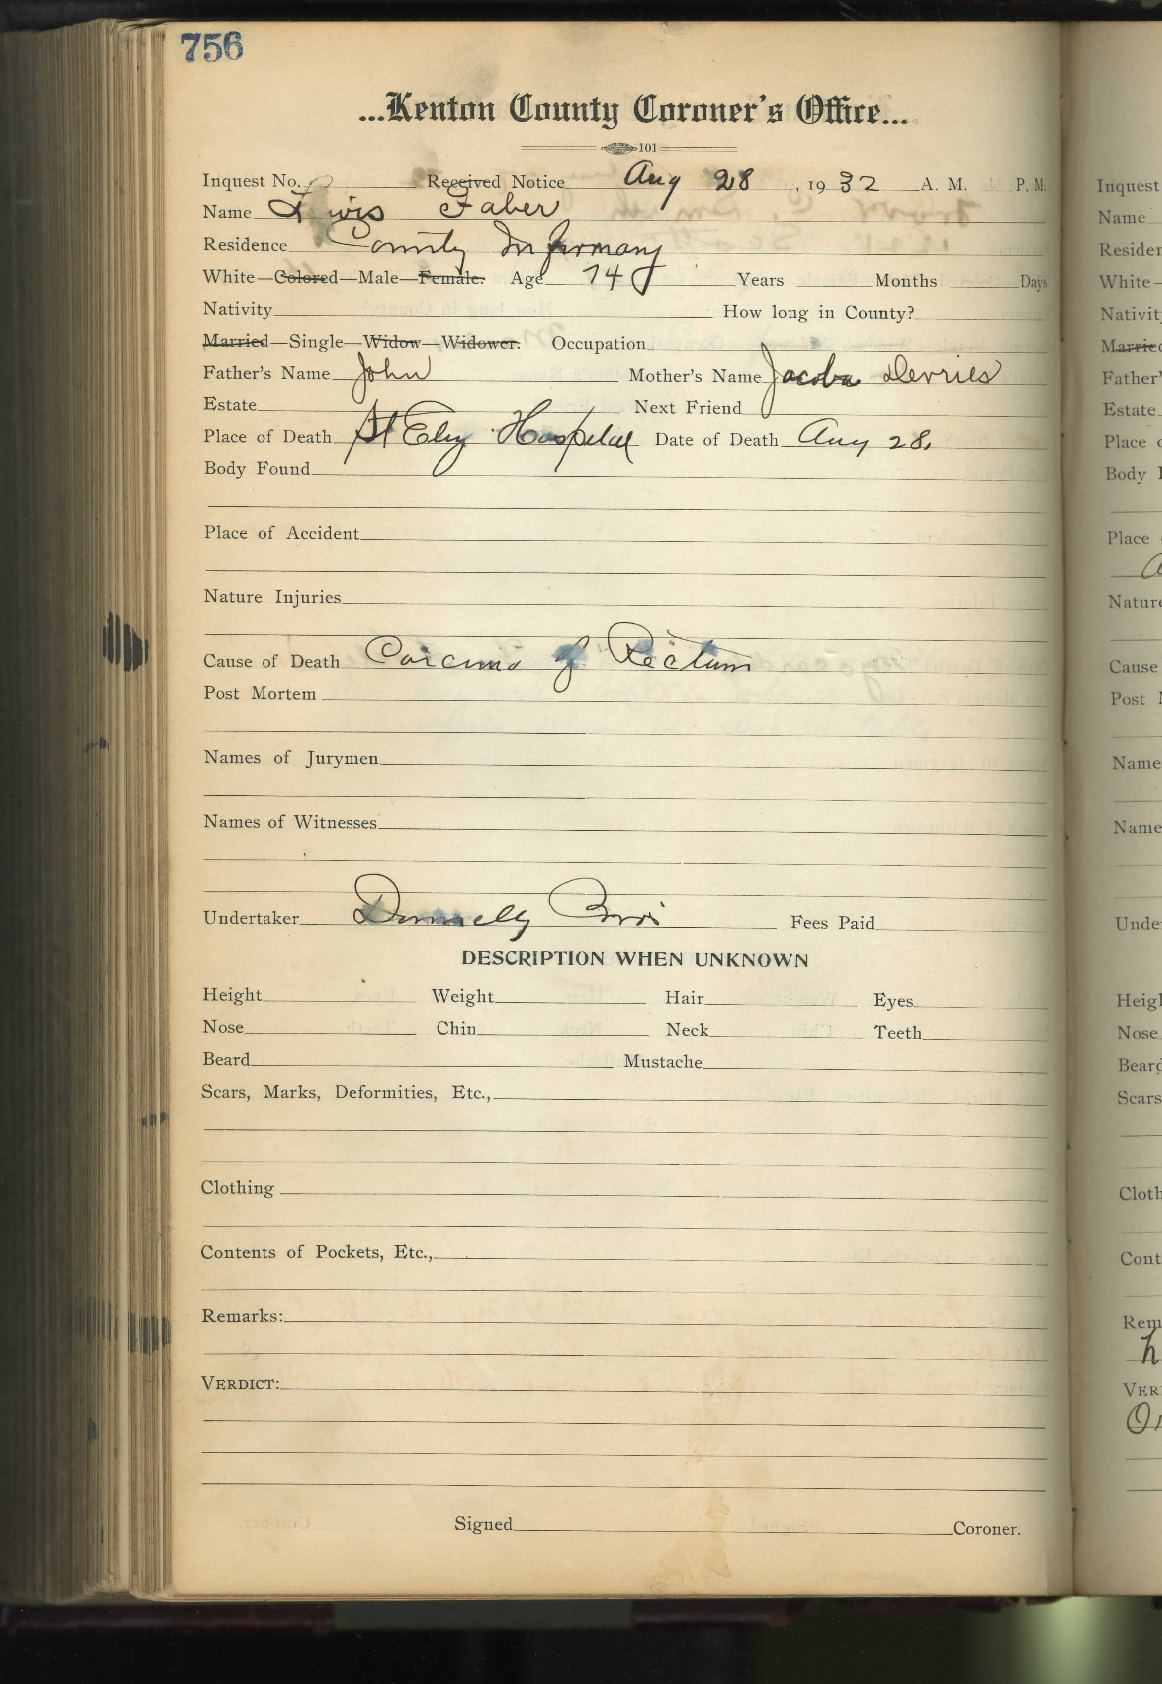 756
...Kenton County Coroner's Office...
101
Inquest No. Received Notice Aug 28, 1932 A. M. P. M.
Name Lewis Faber
Residence County Infirmary
White—Colored—Male—Female. Age 74 Years Months Days
Nativity How long in County?
Married—Single—Widow—Widower. Occupation
Father's Name John Mother's Name Jacoba Devries
Estate Next Friend
Place of Death St Eliz Hospital Date of Death Aug 28.
Body Found
Place of Accident
Nature Injuries
Cause of Death Carcima of Rectum
Post Mortem
Names of Jurymen
Names of Witnesses
Undertaker Donnelly Bros Fees Paid
DESCRIPTION WHEN UNKNOWN
Height Weight Hair Eyes
Nose Chin Neck Teeth
Beard Mustache
Scars, Marks, Deformities, Etc.,
Clothing
Contents of Pockets, Etc.,
Remarks:
VERDICT:
Signed Coroner.
Inquest
Name
Residen
White—
Nativity
Married
Father's
Estate
Place o
Body F
Place
Nature
Cause
Post M
Name
Name
Unde
Heigh
Nose
Beard
Scars
Cloth
Cont
Rem
h
VER
On